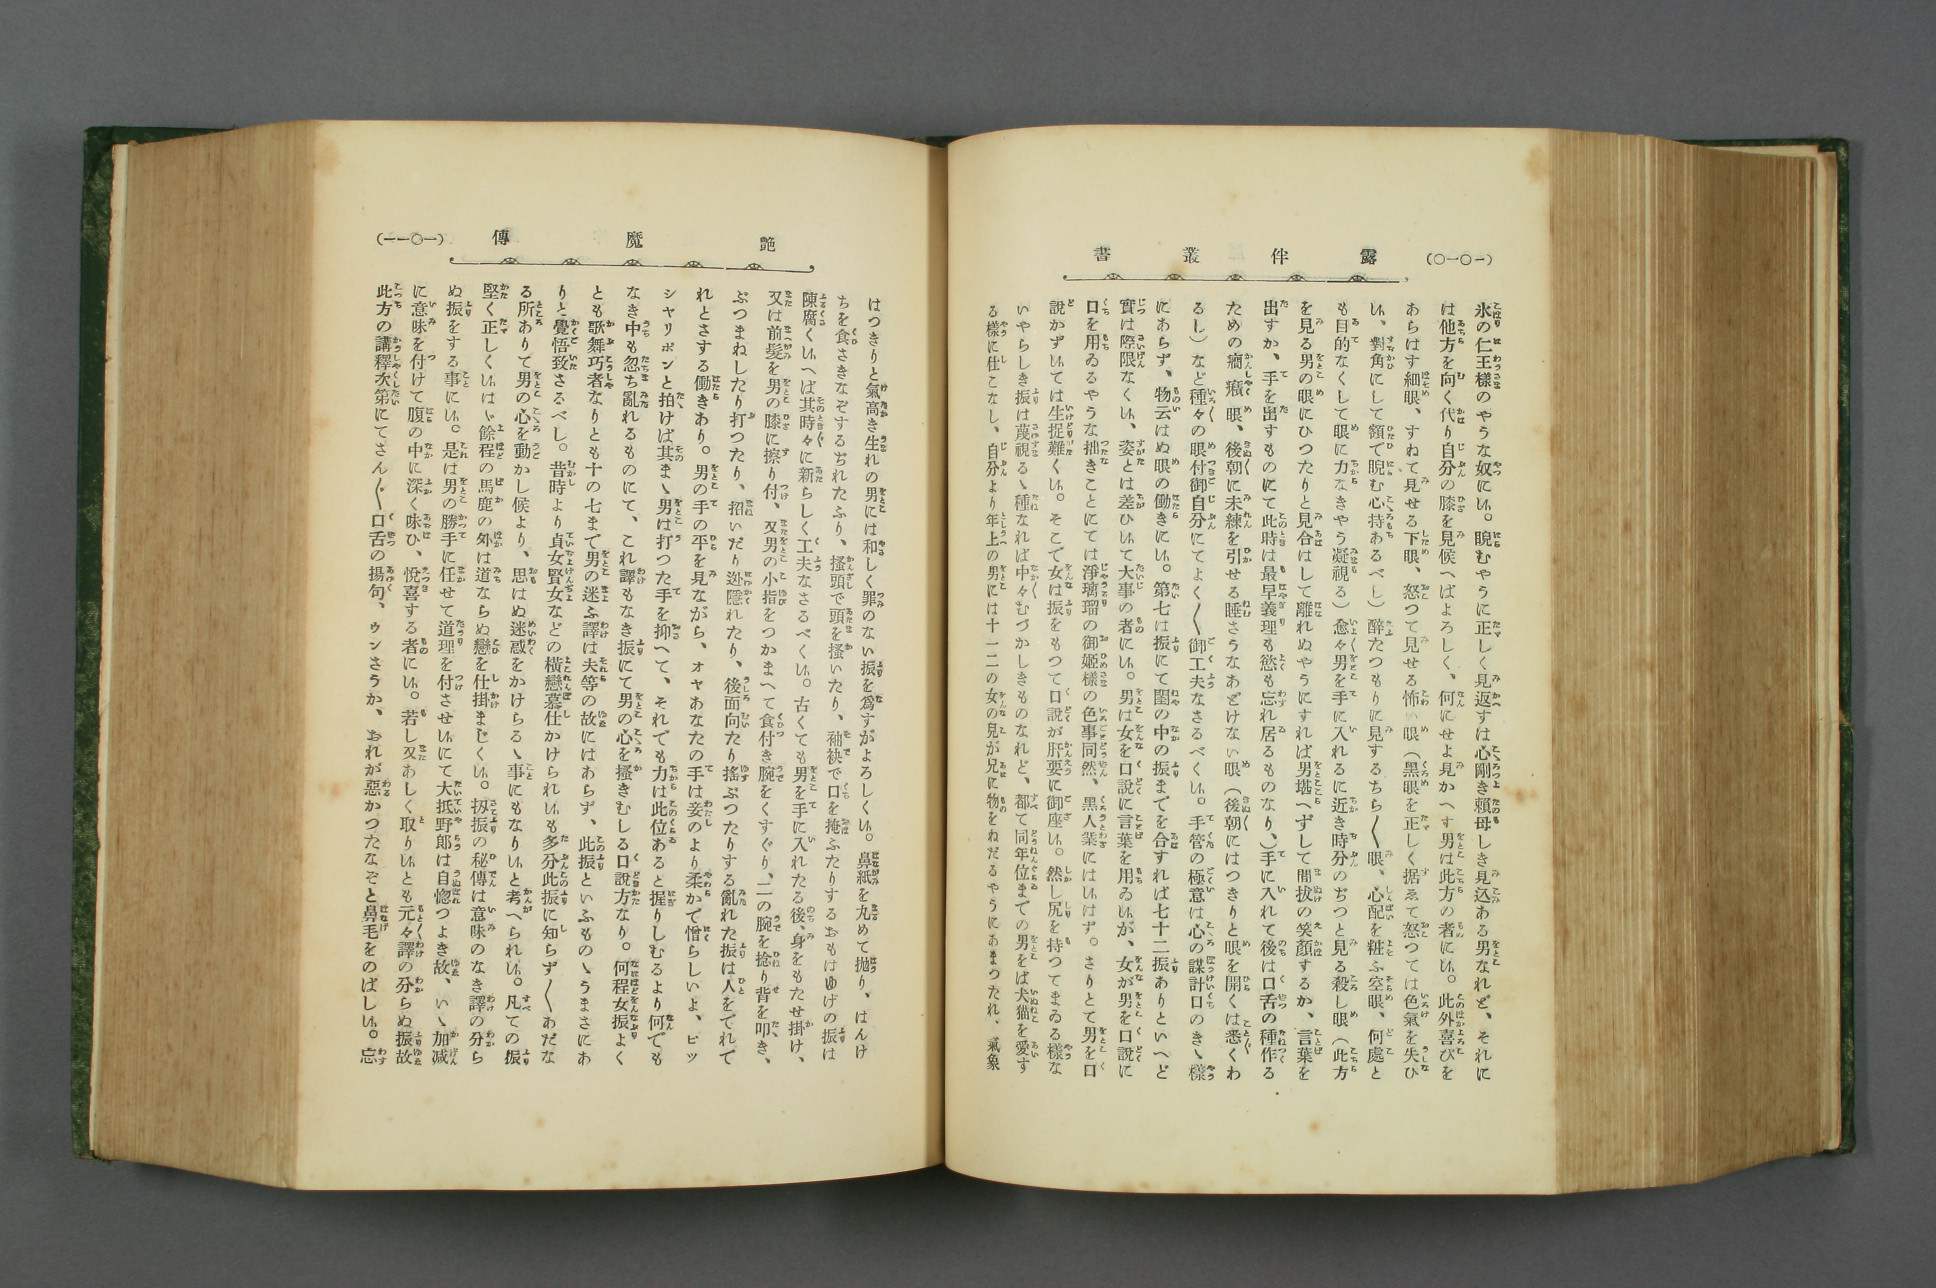 (一〇一〇)
露伴叢書
氷の仁王樣のやうな奴にい。睨むやうに正しく見返すは心剛き頼母しき見込ある男なれど、それに
は他方を向く代り自分の膝を見候へばよろしく、何にせよ見かへす男は此方の者にい。此外喜びを
あらはす細眼、すねて見せる下眼、怒つて見せる怖い眼(黑眼を正しく据ゑて怒つては色氣を失ひ
い、對角にして額で睨む心持あるべし)醉たつもりに見するちら〱眼、心配を粧ふ空眼、何處と
も目的なくして眼に力なきやう凝視る)愈々男を手に入れるに近き時分のぢつと見る殺し眼(此方
を見る男の眼にひつたりと見合はして離れぬやうにすれば男堪へずして間拔の笑顏するか、言葉を
出すか、手を出すものにて此時は最早義理も慾も忘れ居るものなり、)手に入れて後は口舌の種作る
ための癇癪眼、後朝に未練を引かせる睡さうなあどけない眼(後朝にはつきりと眼を開くは悉くわ
るし)など種々の眼付御自分にてよく〱御工夫なさるべくい。手管の極意は心の謀計口のきゝ樣
にあらず、物云はぬ眼の働きにい。第七は振にて閨の中の振までを合すれば七十二振ありといへど
實は際限なくい、姿とは差ひいて大事の者にい。男は女を口說に言葉を用ゐいが、女が男を口說に
口を用ゐるやうな拙きことにては淨璃瑠の御姬樣の色事同然、黑人業にはいはず。さりとて男を口
說かずいては生捉難くい。そこで女は振をもつて口說が肝要に御座い。然し尻を持つてまゐる樣な
いやらしき振は蔑視るゝ種なれば中々むづかしきものなれど、都て同年位までの男をば犬猫を愛す
る樣に仕こなし、自分より年上の男には十一二の女の見が兄に物をねだるやうにあまつたれ、氣象
艶魔傳
(一〇一一)
はつきりと氣高き生れの男には和しく罪のない振を爲すがよろしくい。鼻紙を丸めて抛り、はんけ
ちを食さきなぞするぢれたふり、搔頭で頭を搔いたり、袖袂で口を掩ふたりするおもはゆげの振は
陳腐くいへば其時々に新らしく工夫なさるべくい。古くても男を手に入れたる後、身をもたせ掛け、
又は前髮を男の膝に擦り付、又男の小指をつかまへて食付き腕をくすぐり、二の腕を捻り背を叩き、
ぶつまねしたり打つたり、招いだり迯隱れたり、後面向たり搖ぶつたりする亂れた振は人をでれで
れとさする働きあり。男の手の平を見ながら、オヤあなたの手は妾のより柔かで憎らしいよ、ピツ
シヤリポンと拍けば其まゝ男は打つた手を抑へて、それでも力は此位あると握りしむるより何でも
なき中も忽ち亂れるものにて、これ譯もなき振にて男の心を搔きむしる口說方なり。何程女振よく
とも歌舞巧者なりとも十の七まで男の迷ふ譯は夫等の故にはあらず、此振といふものゝうまさにあ
りと覺悟致さるべし。昔時より貞女賢女などの橫戀慕仕かけられいも多分此振に知らず〱あだな
る所ありて男の心を動かし候より、思はぬ迷惑をかけらるゝ事にもなりいと考へられい。凡ての振
堅く正しくいはゞ餘程の馬鹿の外は道ならぬ戀を仕掛まじくい。扨振の秘傳は意味のなき譯の分ら
ぬ振をする事にい。是は男の勝手に任せて道理を付させいにて大抵野郞は自惚づよき故、いゝ加减
に意味を付けて腹の中に深く味ひ、悅喜する者にい。若し又あしく取りいとも元々譯の分らぬ振故
此方の講釋次第にてさん〲口舌の揚句、ウンさうか、おれが惡かつたなぞと鼻毛をのばしい。忘